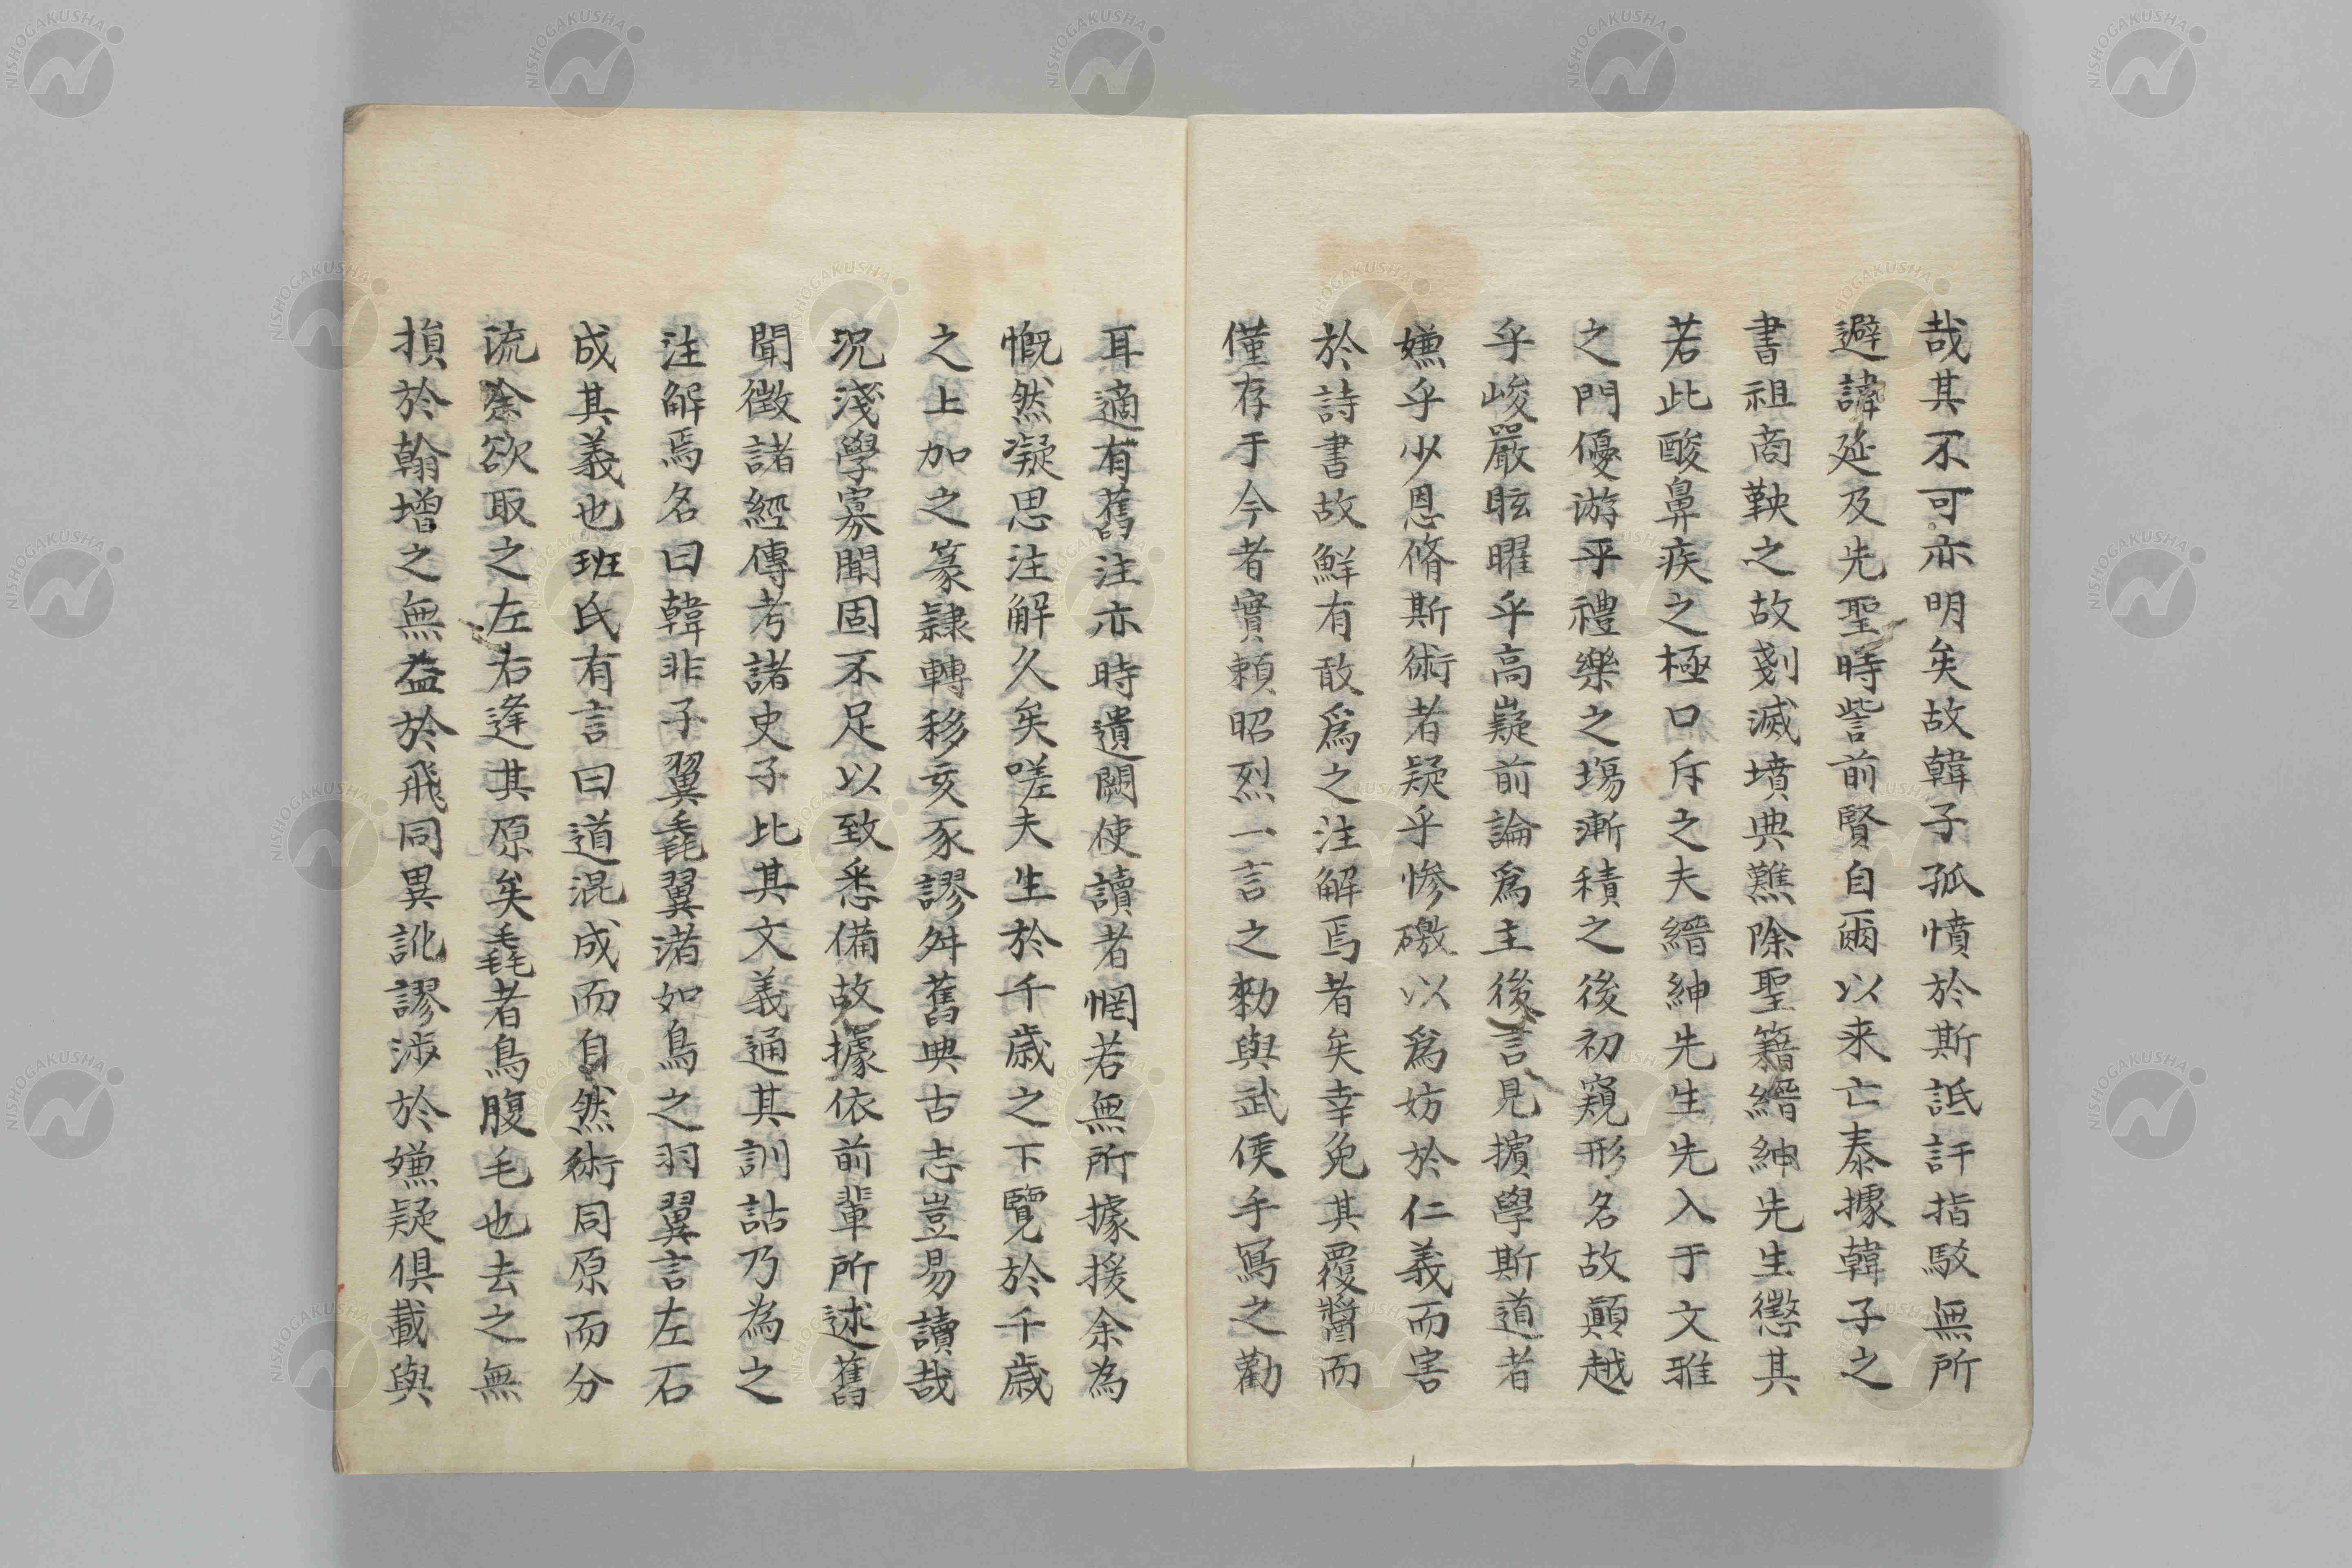 哉其不可亦明矣故韓子孤憤於斯詆訐指駁無所
避諱延及先聖時訾前賢自爾以来亡秦據韓子之
書祖商鞅之故剗滅墳典難除聖籍縉紳先生懲其
若此酸鼻疾之極口斥之夫縉紳先生先入于文雅
之門優游乎禮樂之場漸積之後初窺形名故顛越
乎峻嚴眩曜乎高嶷前論為主後言見擯學斯道者
嫌乎少恩脩斯術者疑乎惨礉以為妨於仁義而害
於詩書故鮮有敢為之注解焉者矣幸免其覆醬而
僅存于今者實頼昭烈一言之勅與武侯手寫之勸
耳適有舊注亦時遺闕使讀者惘若無所據援余為
慨然凝思注解久矣嗟夫生於千歳之下覽於千歳
之上加之篆隷轉移亥豕謬舛舊典古志豈易讀哉
況淺學寡聞固不足以致悉備故據依前輩所述舊
聞徴諸經傳考諸史子比其文義通其訓詁乃為之
注解焉名曰韓非子翼毳翼者如鳥之羽翼言左右
成其義也班氏有言曰道混成而自然術同原而分
流余欲取之左右逢其原矣毳者鳥腹毛也去之無
損於翰増之無益於飛同異訛謬渉於嫌疑倶載與